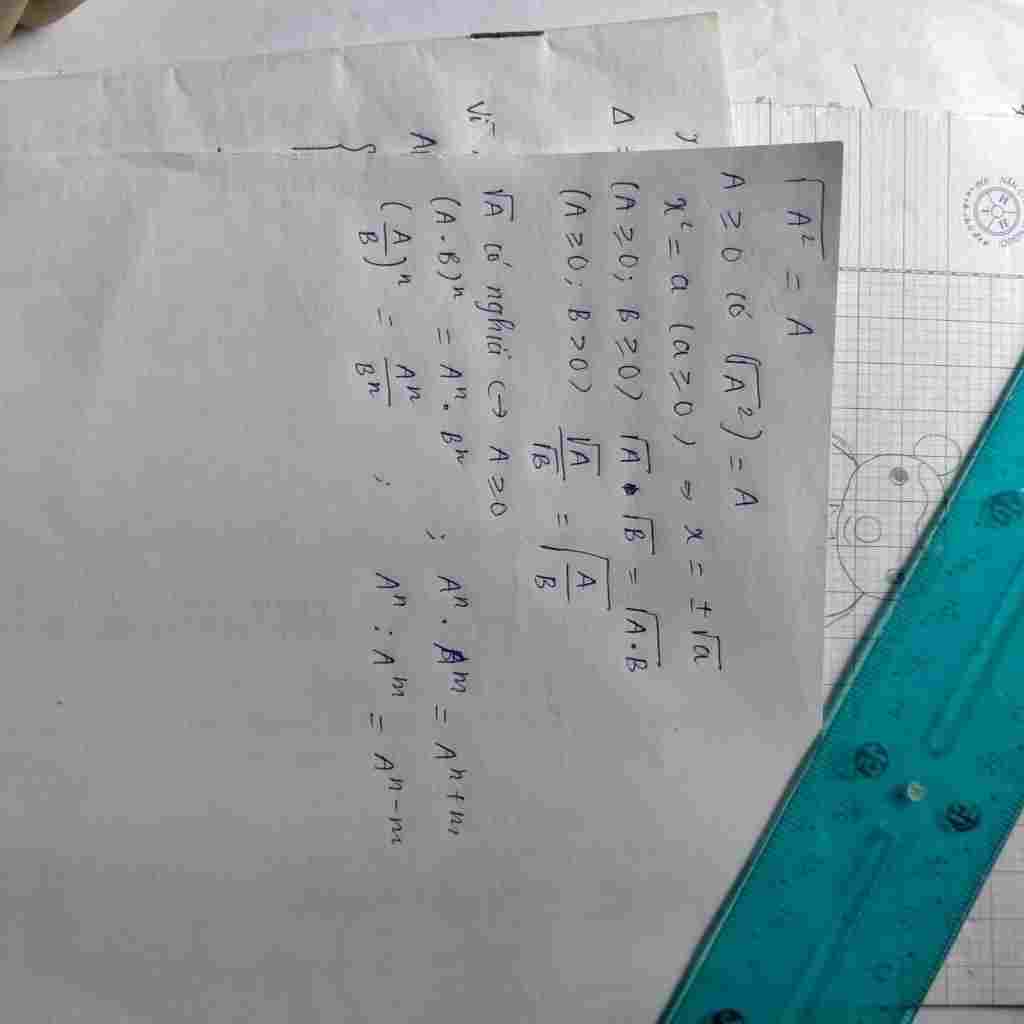 √A² = A
A ≥ 0 có (√A²) = A
x² = a (a ≥ 0) → x = ± √a
(A ≥ 0; B ≥ 0) √A . √B = √A.B
(A ≥ 0; B > 0) √A/√B = √A/B
√A có nghĩa ↔ A ≥ 0
(A.B)ⁿ = Aⁿ.Bⁿ ; Aⁿ.Aᵐ = Aⁿ⁺ᵐ
(A/B)ⁿ = Aⁿ/Bⁿ ; Aⁿ : Aᵐ = Aⁿ⁻ᵐ
Δ =
Vì
A